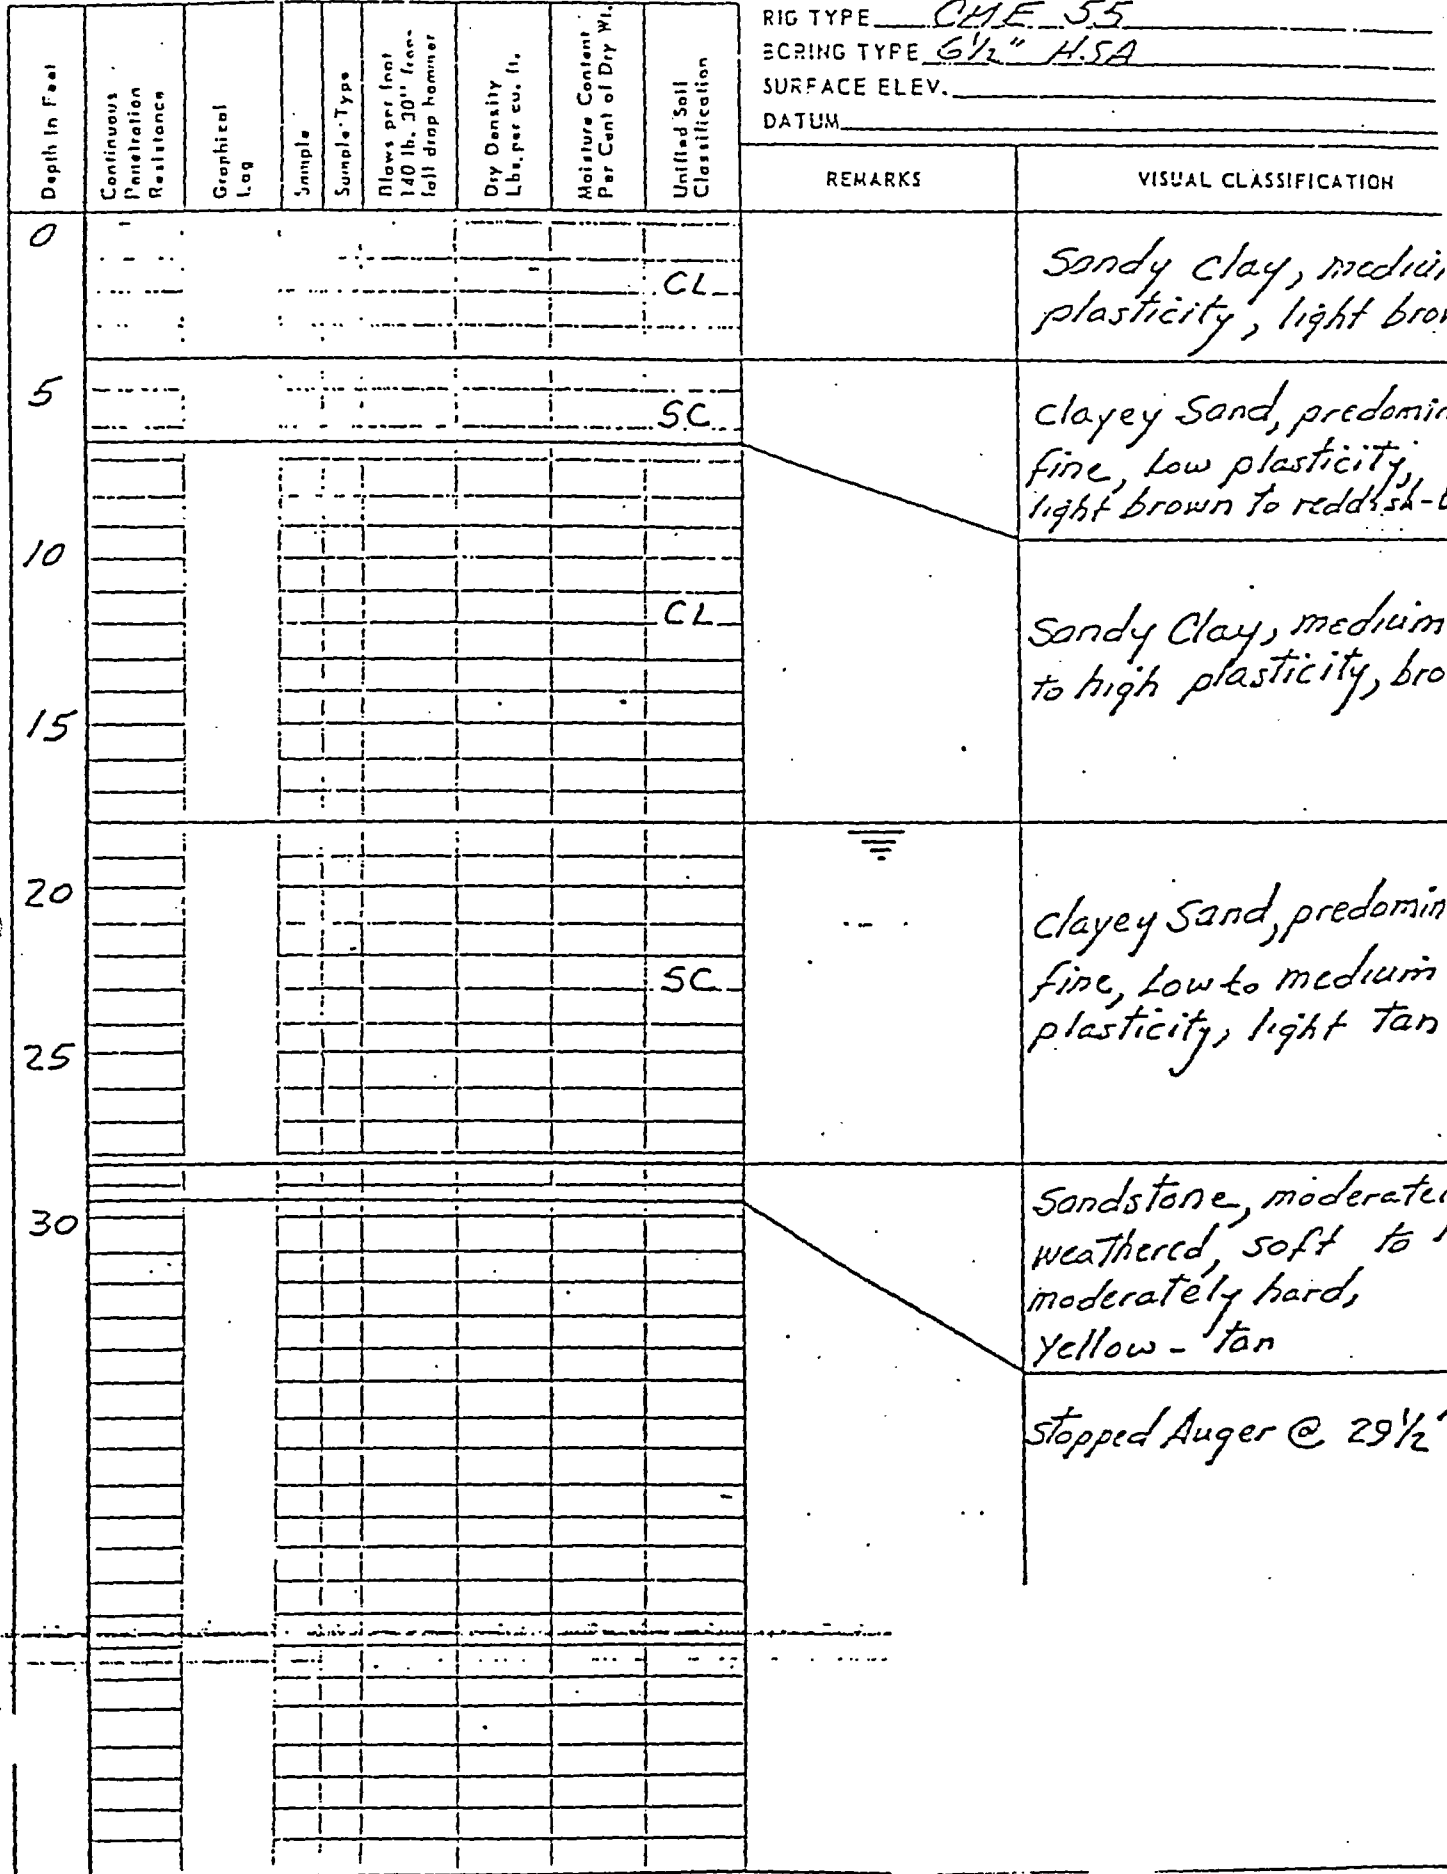 RIG TYPE CME 55
BORING TYPE 6 1/2" H.S.A
SURFACE ELEV.
DATUM
Depth In Feet
Continuous
Penetration
Resistance
Graphical
Log
Sample
Sample Type
Blows per foot
140 lb. 30" free-
fall drop hammer
Dry Density
Lbs. per cu. ft.
Moisture Content
Per Cent of Dry Wt.
Unified Soil
Classification
REMARKS
VISUAL CLASSIFICATION
0
CL
Sandy Clay,
plasticity, light
5
SC
Clayey Sand,
fine, Low plasticity,
light brown to
10
CL
Sandy Clay, medium
to high plasticity,
15
20
Clayey Sand,
SC
fine, Low to medium
plasticity, light Tan
25
30
Sandstone,
weathered, soft to
moderately hard,
Yellow - Tan
Stopped Auger @ 29 1/2'